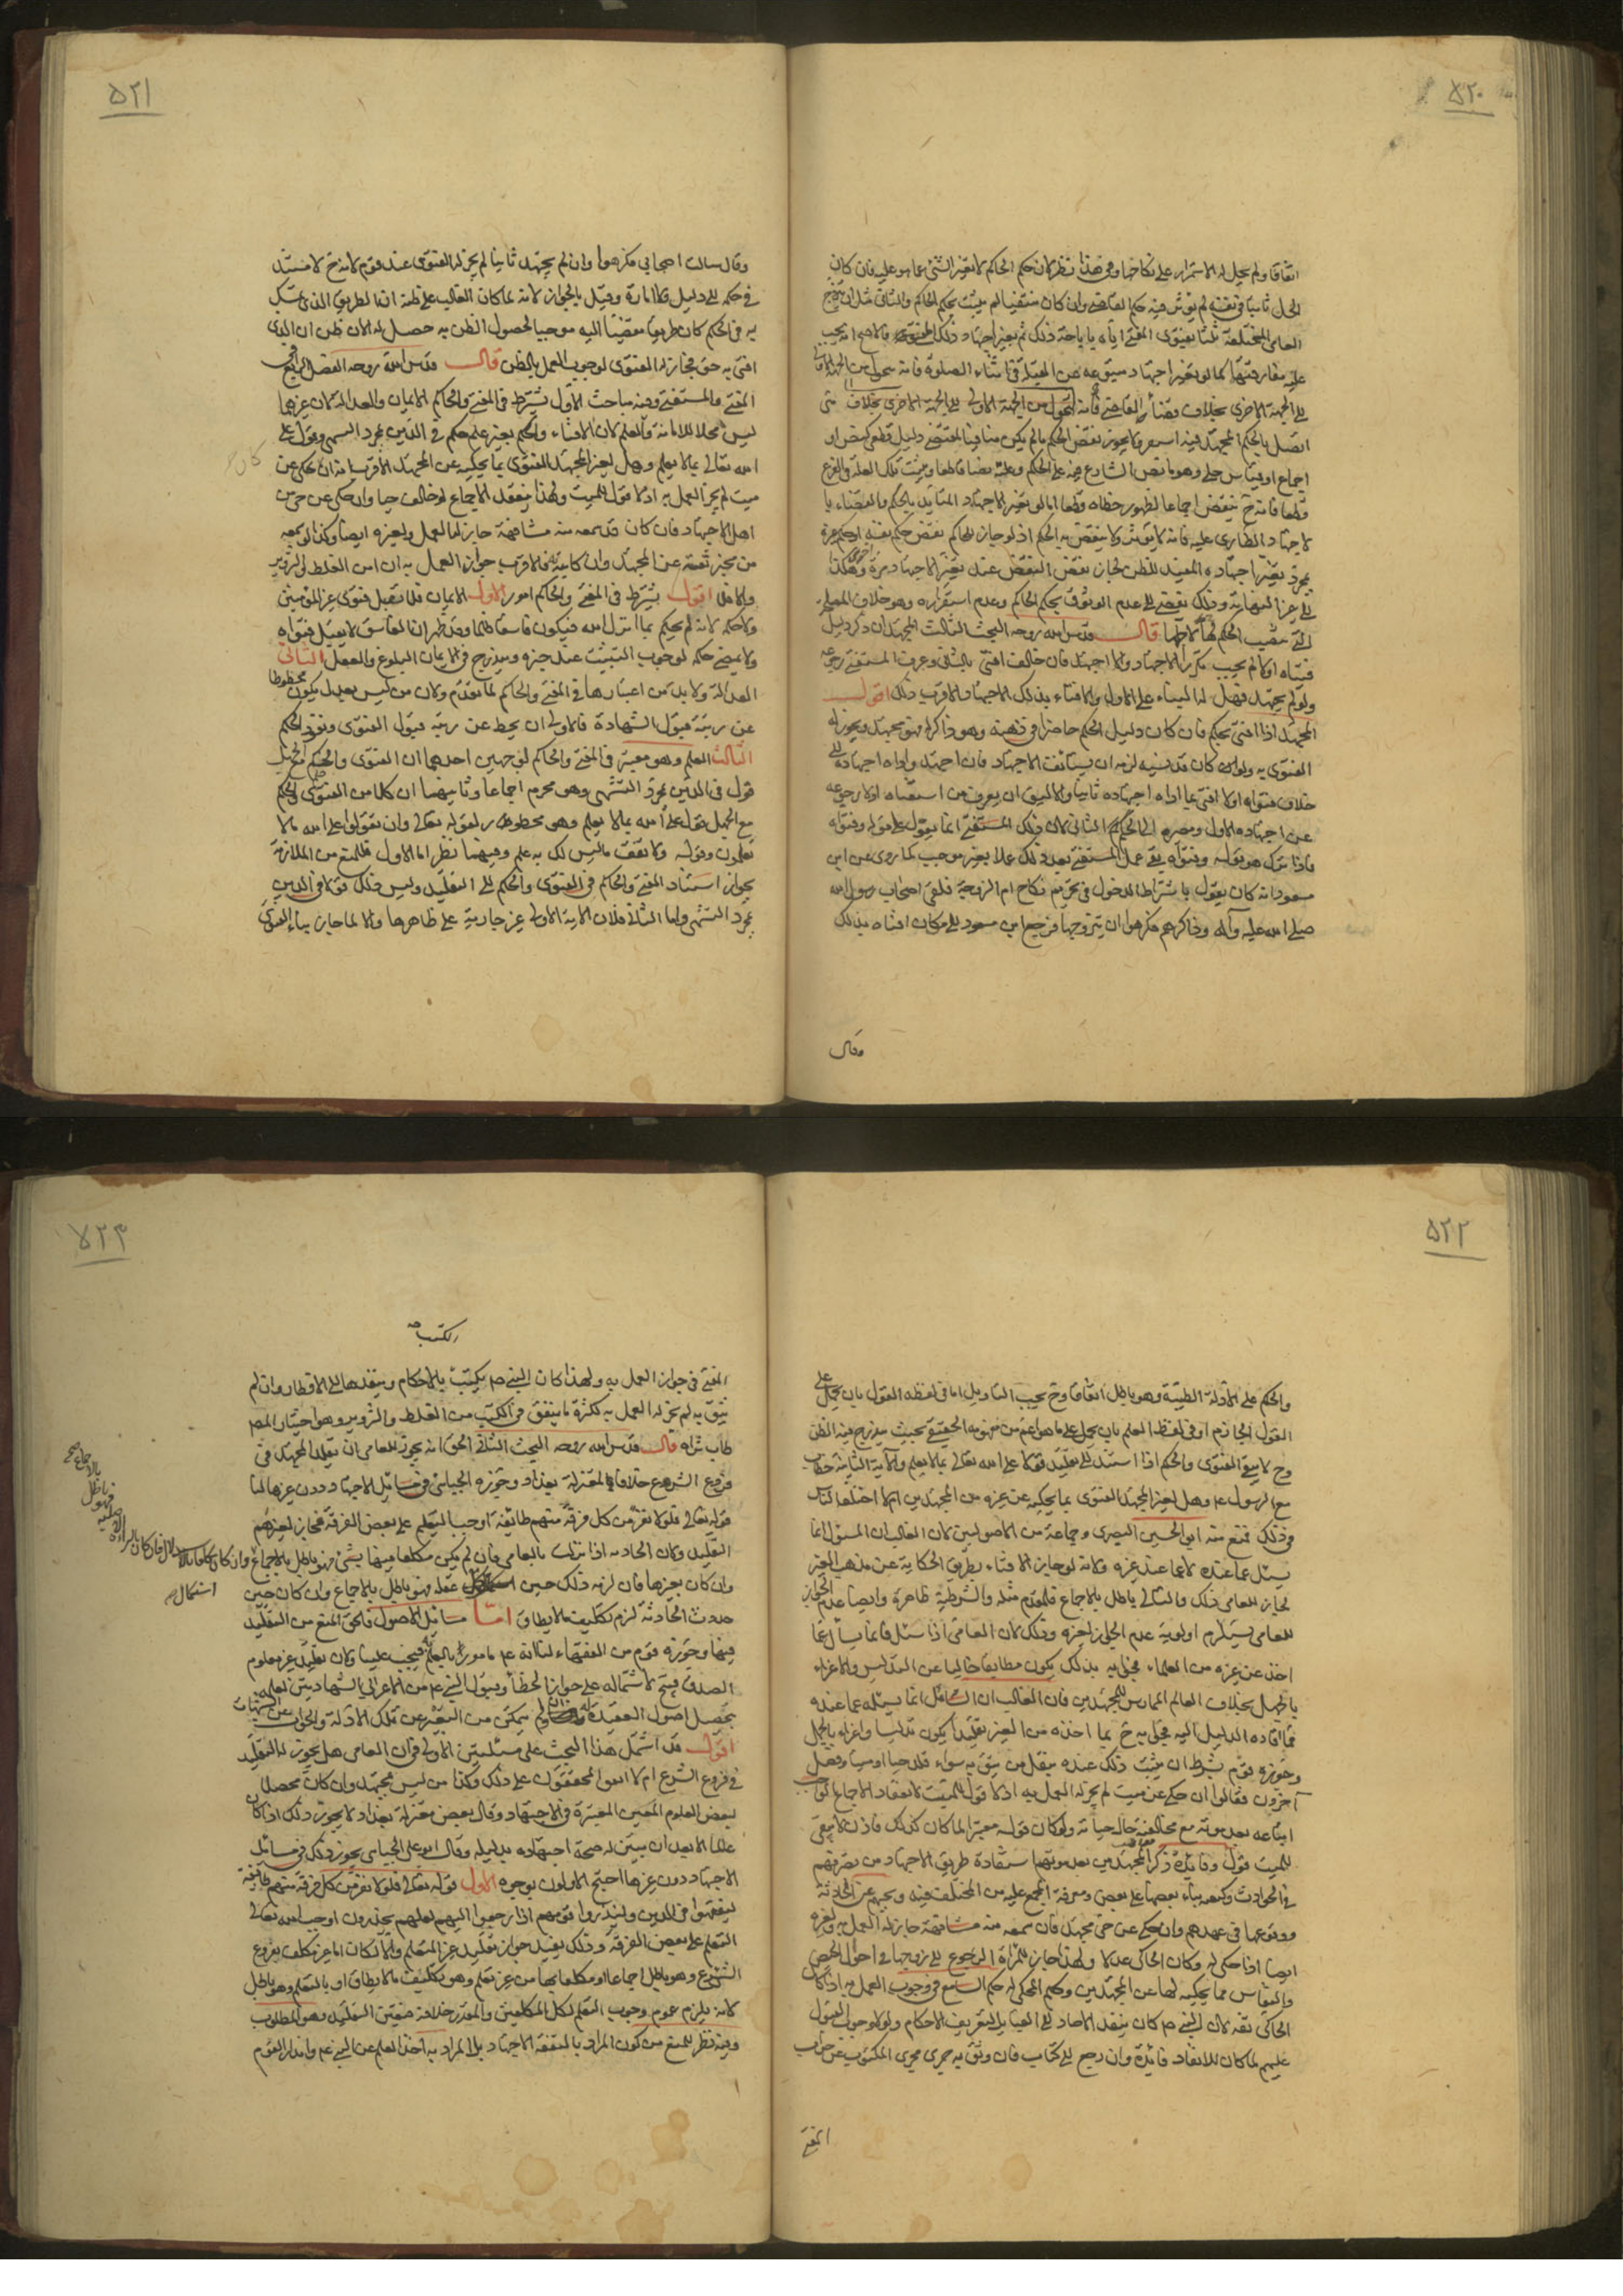 ٥٢٠
اتفاقا ولم يحل له الاستمرار على نكاحها وفى هذا نظر لان حكم الحاكم لا يغير الشئ عما هو عليه فان كان
الحل ثابتا فى نفسه لم يؤثر فيه حكم القاضى وان كان منتفيا لم يثبت بحكم الحاكم والثانى مثل ان يتزوج
العامى المختلعة ثلثا بفتوى المفتى اياه باباحة ذلك ثم تغير اجتهاد ذلك المفتى فالاصح انه يجب
عليه مفارقتها كما لو تغير اجتهاد متبوعه عن القبلة فى اثناء الصلوة فانه يتحول من الجهة
الى الجهة الاخرى بخلاف قضاء القاضى فانه لتحول من الجهة الاولى الى الجهة الاخرى بخلاف متى
اتصل بالحكم المجتهد فيه استقر ولا يجوز نقض الحكم مالم يكن منافيا لمقتضى دليل قطعى كنص او
اجماع او قياس جلى وهو ما نص الشارع فيه على الحكم وعلته نصا قاطعا ويثبت تلك العلة فى الفرع
قطعا فانه ح ينقض اجماعا لظهور خطاه قطعا اما لو تغير الاجتهاد المتأيد بالحكم والقضاء با
لاجتهاد الطارى عليه فانه لا يؤثر ولا ينقض به الحكم اذ لو جاز للحاكم نقض حكم نفسه او حكم غيره
بمجرد تغير اجتهاده المفيد للظن لجاز نقض النقض عند تغير الاجتهاد مرة اخرى وهكذا
الى غير النهاية وذلك يفضى الى عدم الوثوق بحكم الحاكم وعدم استقراره وهو خلاف المصلحة
التى نصب الحكم لها قال قدس الله روحه البحث الثالث المجتهد ان ذكر دليل
فتياه اولا لم يجب تكرر الاجتهاد والا اجتهد فان خالف افتى بالثانى وعرف المستفتى رجوعه
ولو لم يجتهد فهل له البناء على الاول والافتاء بذلك الاجتهاد الاقرب ذلك اقول
المجتهد اذا افتى بحكم فان كان دليل الحكم حاضرا فى ذهنه وهو ذاكر له فهو مجتهد ويجوز له
الفتوى به ولو كان قد نسيه لزمه ان يستأنف الاجتهاد فان اجتهد واداه اجتهاده الى
خلاف فتواه اولا افتى بما اداه اجتهاده ثانيا والاليق ان يعرف من استفتاه اولا رجوعه
عن اجتهاده الاول ومصيره الى الحكم الثانى لان ذلك المستفتى انما يعول على قوله وفتواه
فاذا ترك هو قوله وفتواه بقى عمل المستفتى بعد ذلك عملا بغير موجب كما روى عن ابن
مسعود انه كان يقول باشتراط الدخول فى تحريم نكاح ام الزوجة فلقى اصحاب رسول الله
صلى الله عليه وآله وذاكرهم فكرهوا ان يتزوجها فرجع ابن مسعود الى من كان افتاه بذلك
وقال
٥٢١
وقال سالت اصحابى فكرهوا وان لم يجتهد ثانيا لم يجز له الفتوى عند قوم لانه ح لا مستند
فى حكمه الى دليل ولا امارة وقيل بالجواز لانه لما كان الغالب على ظنه ان الطريق الذى تمسك
به فى الحكم كان طريقا مفضيا اليه موجبا لحصول الظن به حصل له الان ظن ان الذى
افتى به حق فجاز له الفتوى لوجوب العمل بالظن قال قدس الله روحه الفصل الرابع فى
المفتى والمستفتى وفيه مباحث الاول يشترط فى المفتى والحاكم الايمان والعدالة لان غيرهما
ليس محلا للامانة والعلم لان الافتاء والحكم بغير علم حكم فى الدين بمجرد التشهى وقول على
الله تعالى بما لا يعلم وهل لغير المجتهد الفتوى بما يحكيه عن المجتهد الاقرب انه ان حكى عن
ميت لم يجز العمل به اذ لا قول للميت ولهذا ينعقد الاجماع لو خالف حيا وان حكى عن حى من
اهل الاجتهاد فان كان قد سمعه منه مشافهة جاز له العمل ولغيره ايضا وكذا لو سمعه
من مخبر ثقة عن المجتهد وان كاتبه فالاقرب جواز العمل به ان امن الغلط والتزوير
والا فلا اقول يشترط فى المفتى والحاكم امور الاول الايمان فلا تقبل فتوى غير المؤمن
ولا حكمه لانه لم يحكم بما انزل الله فيكون فاسقا ظالما وقد ظهر ان الفاسق لا يقبل فتواه
ولا يمضى حكمه لوجوب التثبت عند خبره ويندرج فى الايمان البلوغ والعقل الثانى
العدالة ولا بد من اعتبارها فى المفتى والحاكم لما تقدم ولان من ليس بعدل يكون محطوطا
عن رتبة قبول الشهادة فالاولى ان يحط عن رتبة قبول الفتوى ونفوذ الحكم
الثالث العلم وهو معتبر فى المفتى والحاكم لوجهين احدهما ان الفتوى والحكم مع الجهل
قول فى الدين بمجرد التشهى وهو محرم اجماعا وثانيهما ان كلا من الفتوى والحكم
مع الجهل قول على الله بما لا يعلم وهو محظور لقوله تعالى وان تقولوا على الله ما لا
تعلمون وقوله ولا تقف ما ليس لك به علم وفيهما نظر اما الاول فللمنع من الملازمة
بجواز استناد المفتى والحاكم فى الفتوى والحكم الى التقليد وليس ذلك قولا فى الدين
بمجرد التشهى واما الثانى فلان الاية الاولى غير جارية على ظاهرها والا لما جاز بناء الفتوى
٥٢٢
والحكم على الادلة الظنية وهو باطل اتفاقا وح يجب التاويل اما فى لفظه القول بان يحمل على
القول الجازم او فى لفظ العلم بان يحمل على ما هو اعم من مفهومه الحقيقى بحيث يندرج فيه الظن
وح لا يبقى الفتوى والحكم اذا استند الى تقليد قولا على الله تعالى بما لا يعلم والاية الثانية خطاب
مع الرسول ع وهل لغير المجتهد الفتوى بما يحكيه عن غيره من المجتهدين ام لا اختلف الناس
فى ذلك فمنع منه ابو الحسين البصرى وجماعة من الاصوليين لان الغالب ان المسؤل انما
يسئل عما عنده لا عما عند غيره ولانه لو جاز الافتاء بطريق الحكاية عن مذهب الغير
لجاز للعامى ذلك والتالى باطل بالاجماع فالمقدم مثله والشرطية ظاهرة وايضا عدم الجواز
للعامى يستلزم اولوية عدم الجواز لغيره وذلك لان العامى اذا سئل فانما يسأل عما
اخذ عن غيره من العلماء فيجيب به بذلك يكون مطابقا خاليا عن التدليس والاغراء
باطل بخلاف العالم الممارس للمجتهدين فان الغالب ان السائل انما يسئله عما عنده
مما اقاده الدليل اليه فيجيب به ح بما اخذه من الغير تقليدا يكون تدليسا واغراء بالجهل
وجوزه قوم بشرط ان يثبت ذلك عنده بنقل من يثق به سواء قلد حيا او ميتا وفصل
آخرون فقالوا ان حكى عن ميت لم يجز له العمل به اذ لا قول للميت لانعقاد الاجماع
اتباعه بعد موته مع مخالفته حال حياته ولو كان قوله معتبرا لما كان كذلك فاذن لا يبقى
للميت قول وفائدة ذكر المجتهدين بعد موتهم استفادة طريق الاجتهاد من تصرفهم
فى الحوادث وكيفية بناء بعضها على بعض ومعرفة المجمع عليه من المختلف فيه وبحثهم عن الحادثة
ووقوعها فى عهدهم وان حكى عن حى مجتهد فان سمعه منه مشافهة جاز له العمل به ولغيره
ايضا اذا حكى له وكان الحاكى عدلا ولهذا جاز للمراة الرجوع الى زوجها فى احوال الحيض
والنفاس مما يحكيه لها عن المجتهدين وحكم المحكى له حكم السامع فى وجوب العمل به اذا كان
الحاكى ثقة لان النبى ص كان ينفذ الاحاد الى القبايل لتعريف الاحكام ولولا وجوب القبول
عليهم لما كان للانفاذ فائدة وان رجع الى كتاب فان وثق به جرى مجرى المكتوب من جواب
المفتى
٥٢٣
الكتب صح
المفتى فى جواز العمل به ولهذا كان النبى ص يكتب بالاحكام وينفذها الى الاقطار وان لم
يثق به لم يجز له العمل به لكثرة ما يتفق فى الكتب من الغلط والتزوير وهو اختيار المص
طاب ثراه قال قدس الله روحه البحث الثانى الحق انه يجوز للعامى ان يقلد المجتهد فى
فروع الشرع خلافا لمعتزلة بغداد وجوزه الجبائى فى مسائل الاجتهاد دون غيرها لنا
قوله تعالى فلولا نفر من كل فرقة منهم طائفة اوجب التعلم على بعض الفرقة فجاز لغيرهم
التقليد ولان الحادثة اذا نزلت بالعامى فان لم يكن مكلفا فيها بشئ فهو باطل بالاجماع وان كان مكلفا بالاستدلال فان كان بالبراءة الاصلية فهو باطل بالاجماع صح
وان كان بغيرها فان لزمه ذلك حين استكمال عقله فهو باطل بالاجماع وان كان حين
استكمال صح
حدث الحادثة لزم تكليف ما لا يطاق اما مسائل الاصول فالحق المنع من التقليد
فيها وجوزه قوم من الفقهاء لنا انه ع مامور بالعلم فيجب علينا ولان تقليد غير معلوم
الصدق قبيح لاشتماله على جواز الخطأ وقبول النبى ع من الاعرابى الشهادتين لعلمه
بحصل اصول العقيدة له وان لم يتمكن من التعبير عن تلك الادلة والجواب عن الشبهات
اقول قد اشتمل هذا البحث على مسئلتين الاولى فى ان العامى هل يجوز له التقليد
فى فروع الشرع ام لا اتفق المحققون على ذلك وكذا من ليس بمجتهد وان كان محصلا
لبعض العلوم المعتبرة فى الاجتهاد وقال بعض معتزلة بغداد لا يجوز ذلك اذا كان
عالما الا بعد ان يتبين له صحة اجتهاده بدليله وقال ابو على الجبائى يجوز ذلك فى مسائل
الاجتهاد دون غيرها احتج الاولون بوجوه الاول قوله تعالى فلولا نفر من كل فرقة منهم طائفة
ليتفقهوا فى الدين ولينذروا قومهم اذا رجعوا اليهم لعلهم يحذرون اوجب الله تعالى
التعلم على بعض الفرقة وذلك يفيد جواز تقليد غير المتعلم والا لكان اما غير مكلف بفروع
الشرع وهو باطل اجماعا او مكلفا بها من غير تعلم وهو تكليف ما لا يطاق او بالتعلم وهو باطل
لانه يلزم عموم وجوب التعلم لكل المكلفين والمقدر خلافه فتعين التقليد وهو المطلوب
وفيه نظر للمنع من كون المراد بالتفقه الاجتهاد بل المراد به اخذ العلم عن النبى ع وانذار القوم